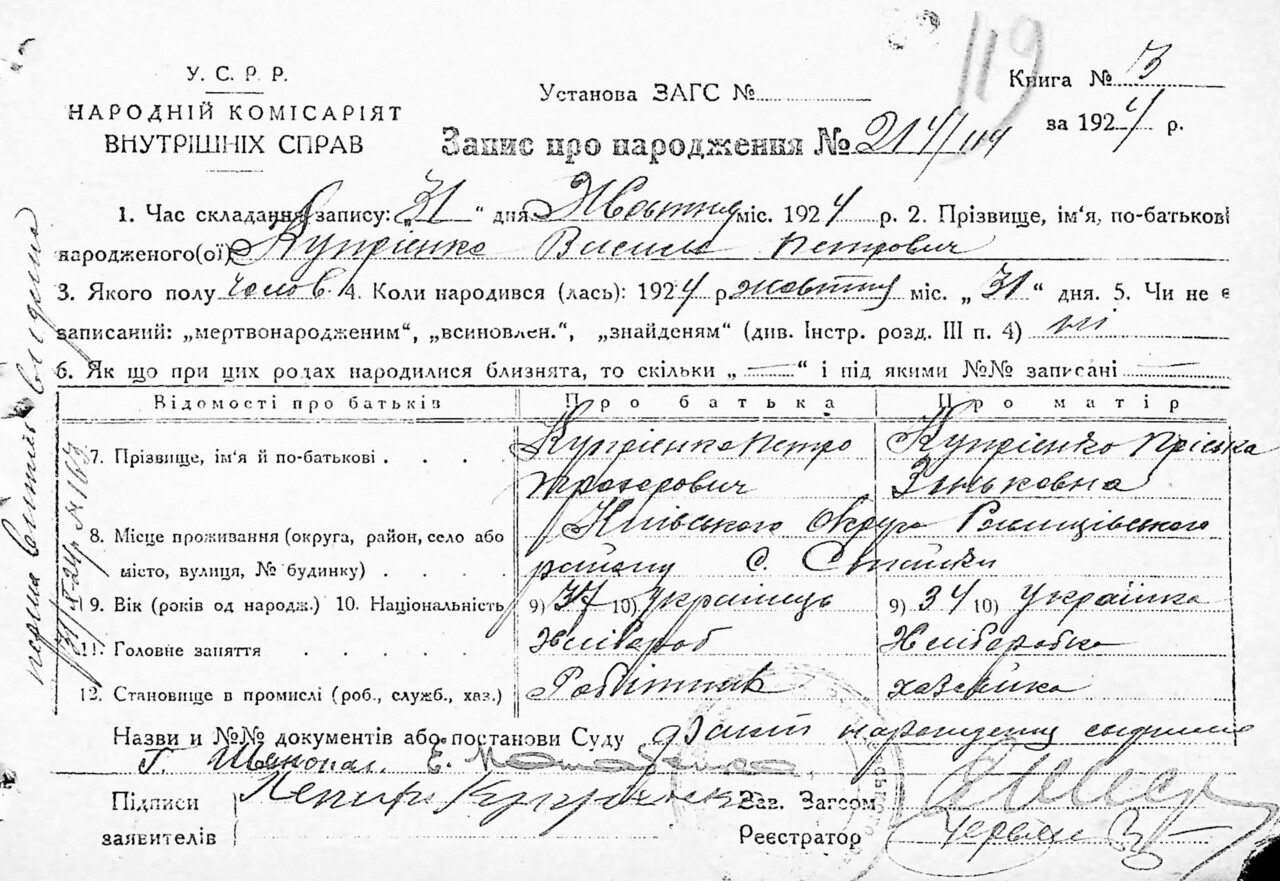 119
У. С. Р. Р.
НАРОДНІЙ КОМІСАРІЯТ
ВНУТРІШНІХ СПРАВ
Установа ЗАГС №
Книга № 3
за 1924 р.
Запис про народження № 214/119
1. Час складання запису: „31“ дня Жовтня міс. 1924 р. 2. Прізвище, ім'я, по-батькові
народженого(ої) Купрієнко Василь Петрович
3. Якого полу чолов. 4. Коли народився (лась): 1924 р. жовтня міс. „31“ дня. 5. Чи не є
записаний: „мертвонародженим“, „всиновлен.“, „знайденям“ (див. Інстр. розд. III п. 4) ні
6. Як що при цих родах народилися близнята, то скільки „—“ і під якими №№ записані —
Відомості про батьків Про батька Про матір
7. Прізвище, ім'я й по-батькові . . . . Купрієнко Петро Купрієнко Пріська
Прохорович Зіньковна
8. Місце проживання (округа, район, село або Київського округа Ржищівського
місто, вулиця, № будинку) . . . . району с. Стайки
9. Вік (років од народж.) 10. Національність 9) 37 10) Українець 9) 34 10) Українка
11. Головне заняття . . . . . Хлібороб Хліборобка
12. Становище в промислі (роб., служб., хаз.) Робітник хазяйка
Назви и №№ документів або постанови Суду факт народження
Підписи
заявителів
Зав. Загсом
Реєстратор
перша видана
№ 163